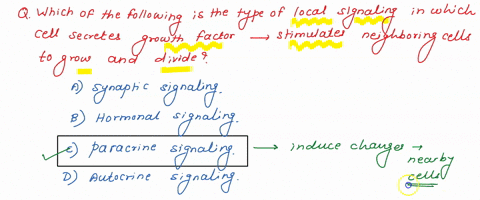 Q. Which of the following is the type of local signaling in which
cell secretes growth factor → stimulates neighboring cells
to grow and divide?
A) Synaptic signaling.
B) Hormonal signaling.
C) Paracrine signaling. → induce changes → nearby cells
D) Autocrine signaling.